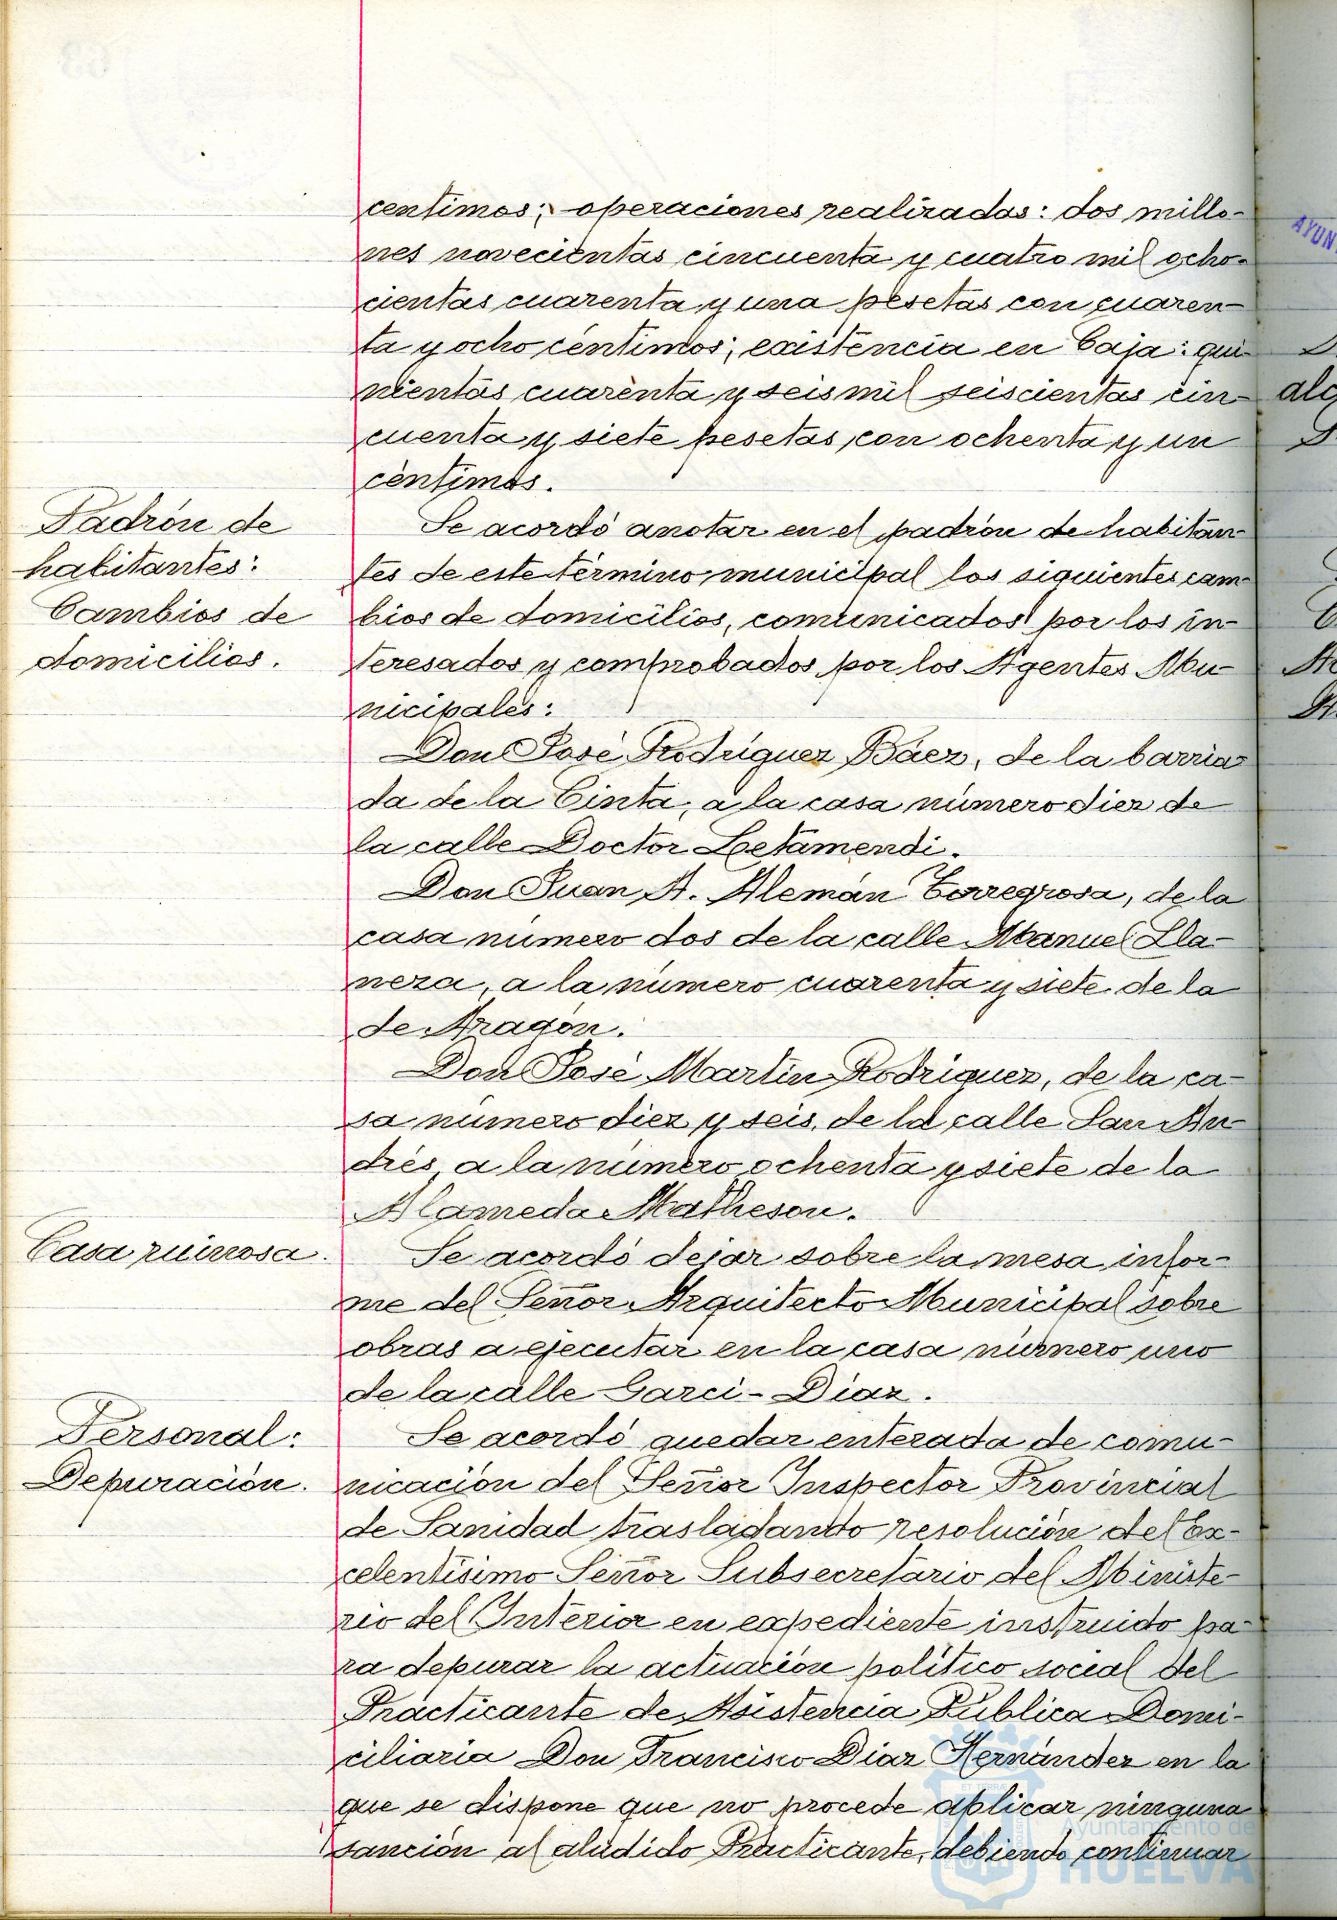 centimos; operaciones realizadas: dos millo-
nes novecientas cincuenta y cuatro mil ocho-
cientas cuarenta y una pesetas con cuaren-
ta y ocho céntimos; existencia en Caja: qui-
nientas cuarenta y seis mil seiscientas cin-
cuenta y siete pesetas con ochenta y un
céntimos.
Padrón de
habitantes:
Cambios de
domicilios.
Se acordó anotar en el padrón de habitan-
tes de este término municipal los siguientes cam-
bios de domicilios, comunicados por los in-
teresados y comprobados por los Agentes Mu-
nicipales:
Don José Rodríguez Báez, de la barria-
da de la Cinta, a la casa número diez de
la calle Doctor Letamendi.
Don Juan A. Alemán Torregrosa, de la
casa número dos de la calle Manuel Lla-
neza, a la número cuarenta y siete de la
de Aragón.
Don José Martín Rodríguez, de la ca-
sa número diez y seis de la calle San An-
drés, a la número ochenta y siete de la
Alameda Matheson.
Casa ruinosa.
Se acordó dejar sobre la mesa infor-
me del Señor Arquitecto Municipal sobre
obras a ejecutar en la casa número uno
de la calle Garci-Díaz.
Personal:
Depuración.
Se acordó quedar enterada de comu-
nicación del Señor Inspector Provincial
de Sanidad trasladando resolución del Ex-
celentísimo Señor Subsecretario del Ministe-
rio del Interior en expediente instruido pa-
ra depurar la actuación político social del
Practicante de Asistencia Pública Domi-
ciliaria Don Francisco Díaz Hernández en la
que se dispone que no procede aplicar ninguna
sanción al aludido Practicante, debiendo continuar
Ayuntamiento de
HUELVA
AYUN
alg